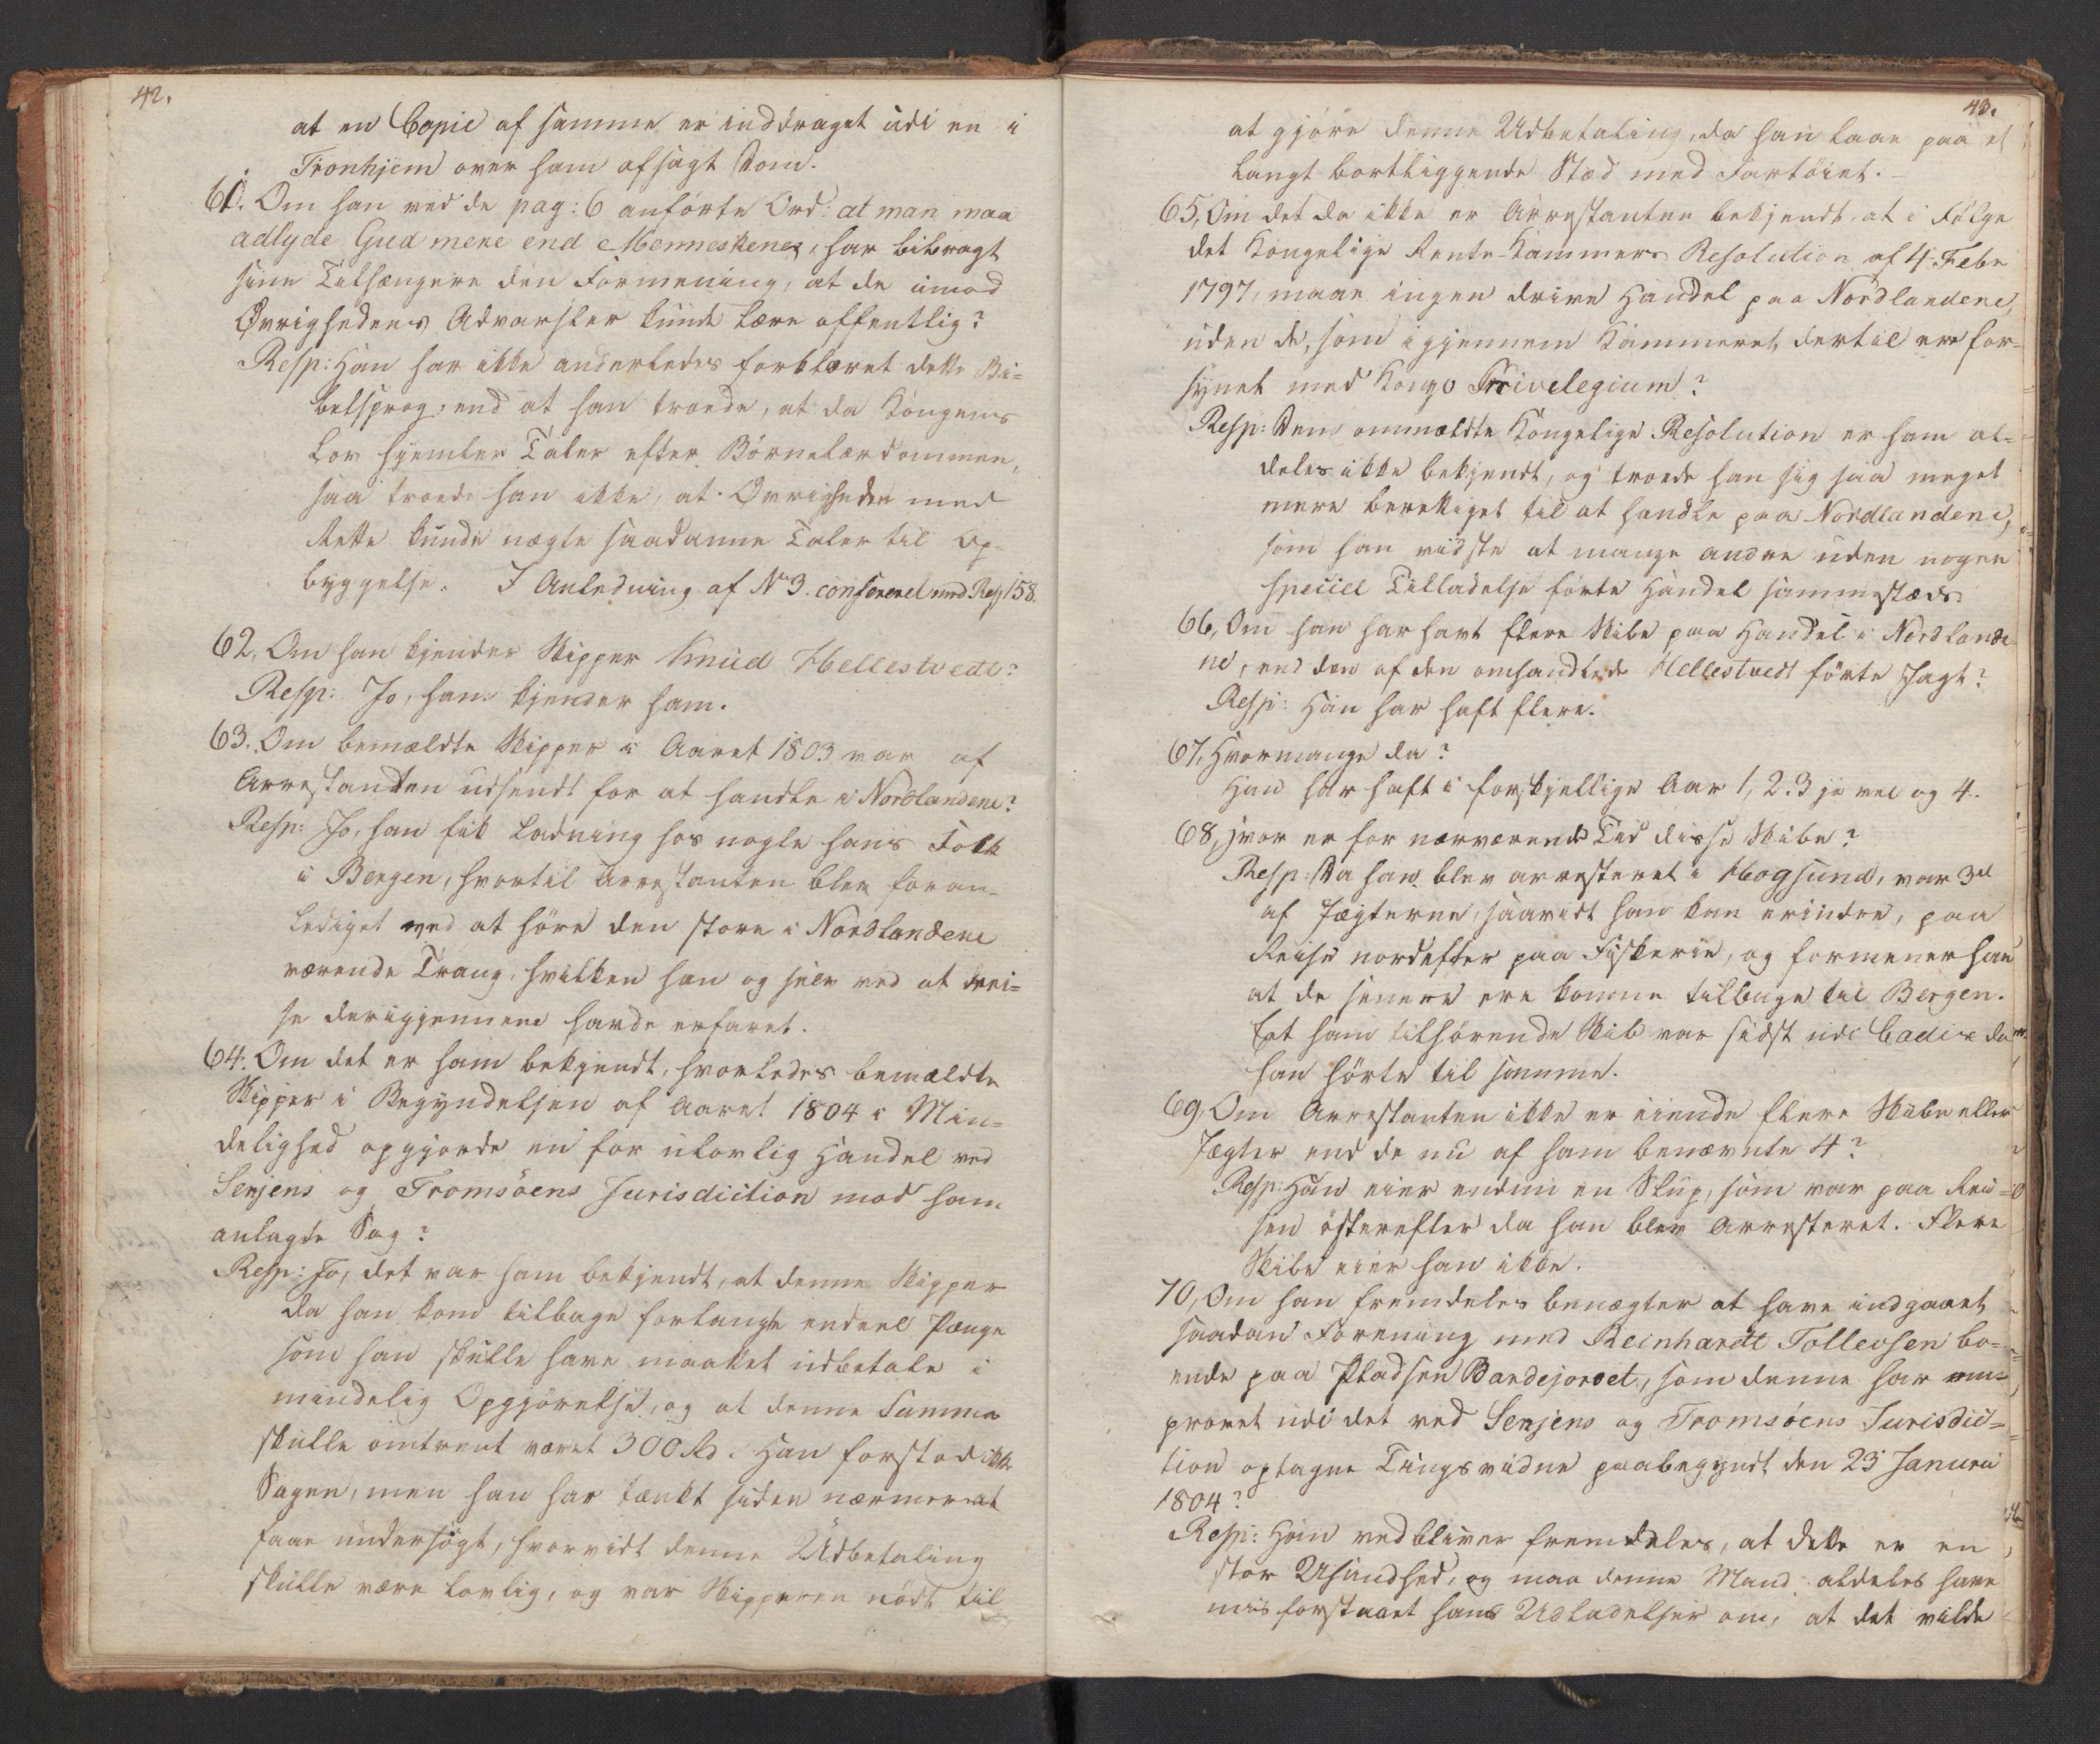 42.
at en Copie af samme er inddraget udi en i
Tronhjem over ham afsagt Dom.
61. Om han ved de pag: 6 anførte Ord: at man maa
adlyde Gud mere end Menneskene, har bibragt
sine Tilhængere den Formening, at de imod
Øvrighedens Advarsler kunde lære offentlig?
Resp: Han har ikke anderledes forklaret dette Bi-
belsprog, end at han troede, at da Kongens
Lov hjemler Taler efter Børnelærdommen,
saa troede han ikke, at Øvrigheden med
Rette kunde nægte saadanne Taler til Op-
byggelse. I Anledning af No 3. confereret med Resp 158.
62, Om han kjender Skipper Knud Hellestvedt?
Resp: Jo, ham kjender ham.
63. Om bemældte Skipper i Aaret 1803 var af
Arrestanten udsendt for at handle i Nordlandene?
Resp: Jo, han fik Ladning hos nogle hans Folk
i Bergen, hvortil Arrestanten blev foran-
lediget ved at høre den store i Nordlandene
værende Trang, hvilken han og selv ved at rei-
se derigjennem havde erfaret.
64. Om det er ham bekjendt, hvorledes bemældte
Skipper i Begyndelsen af Aaret 1804 i Min-
delighed opgjorde en for ulovlig Handel ved
Senjens og Tromsøens Jurisdiction mod ham
anlagte Sag?
Resp: Jo, det var ham bekjendt, at denne Skipper
da han kom tilbage forlangte endeel Penge
som han skulle have maattet udbetale i
mindelig Opgjørelse, og at denne Summa
skulle omtrent været 300 Rd. Han forstod ikke
Sagen, men han har tænkt siden nærmere at
faae undersøgt, hvorvidt denne Udbetaling
skulle være lovlig, og var Skipperen nødt til
43.
at gjøre denne Udbetaling, da han laae paa et
langt bortliggende Stæd med Fartøiet.
65, Om det da ikke er Arrestanten bekjendt, at i Følge
det Kongelige Rente-Kammers Resolution af 4 Febr
1797, maae ingen drive Handel paa Nordlandene,
uden de, som igjennem Kammeret dertil ere for-
synet med Kongl Privelegium?
Resp: Den ommældte Kongelige Resolution er ham al-
deles ikke bekjendt, og troede han sig saa meget
mere berettiget til at handle paa Nordlandene,
som han vidste at mange andre uden nogen
speciel Tilladelse førte Handel sammestæds
66, Om han har havt flere Skibe paa Handel i Nordlande-
ne, end den af den omhandlede Hellestvedt førte Jagt?
Resp: Han har haft flere.
67, Hvormange da?
Han har haft i forskjellige Aar 1, 2. 3 ja vel og 4.
68, Hvor er for nærværende Tid disse Skibe?
Resp: Da han blev arresteret i Hogsund, var 3de
af Jægterne, saavidt han kan erindre, paa
Reise nordefter paa Fiskerie, og formener han
at de senere ere komne tilbage til Bergen.
Eet ham tilhørende Skib var sidst udi Cadix da
han hørte til samme.
69, Om Arrestanten ikke er eiende flere Skibe eller
Jægter end de nu af ham benævnte 4?
Resp: Han eier endnu en Slup, som var paa Rei-
sen østerefter da han blev Arresteret. Flere
Skibe eier han ikke.
70, Om han fremdeles benægter at have indgaaet
saadan Forening med Reinhardt Tollevsen bo-
ende paa Pladsen Bandejordet, som denne har om-
provet udi det ved Senjens og Tromsøens Jurisdic-
tion optagne Tingsvidne paabegyndt den 23 Januari
1804?
Resp: Han vedbliver fremdeles, at dette er en
stor Usandhed, og maa denne Mand aldeles have
misforstaaet hans Udladelser om, at det vilde